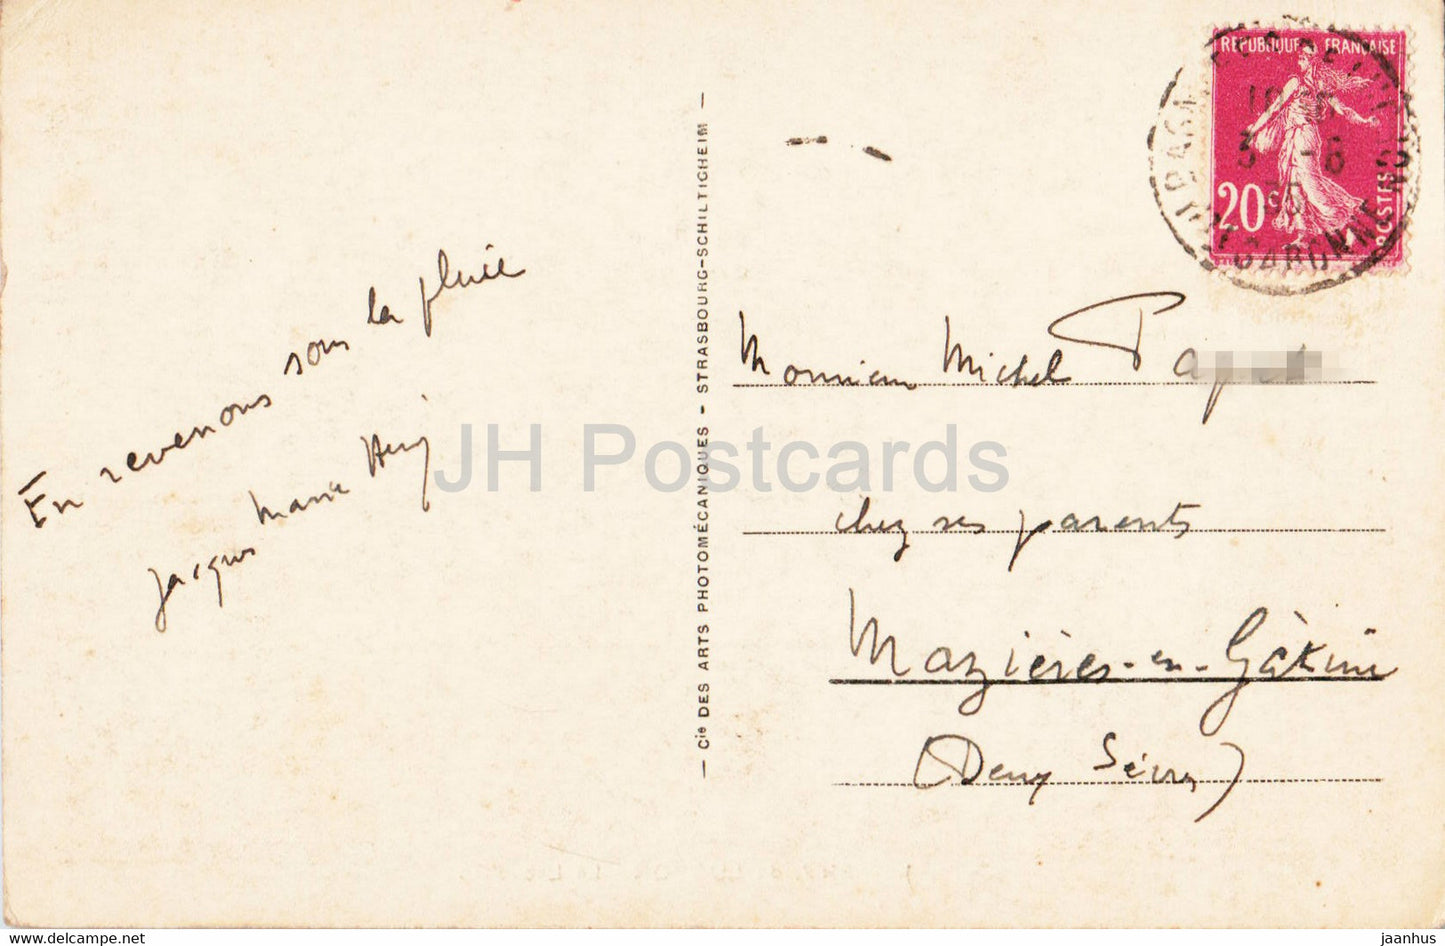 En revenons sous la pluie
Jacques Marie Henri
— Cie DES ARTS PHOTOMÉCANIQUES - STRASBOURG-SCHILTIGHEIM —
REPUBLIQUE FRANÇAISE
20c
POSTES
3 -8
30
GARONNE
Monsieur Michel
chez ses parents
Mazières-en-Gâtine
(Deux Sèvres)
JH Postcards
www.delcampe.net
jaanhus